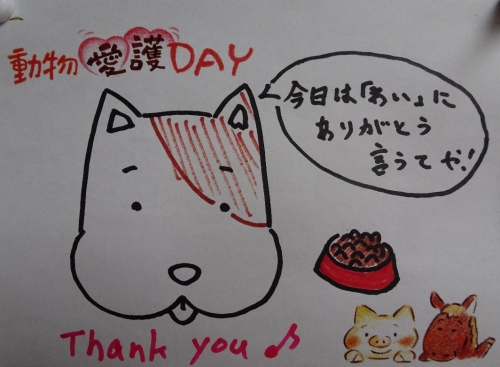 動物愛護DAY
今日は「あい」に
ありがとう
言うてや!
Thank you♪